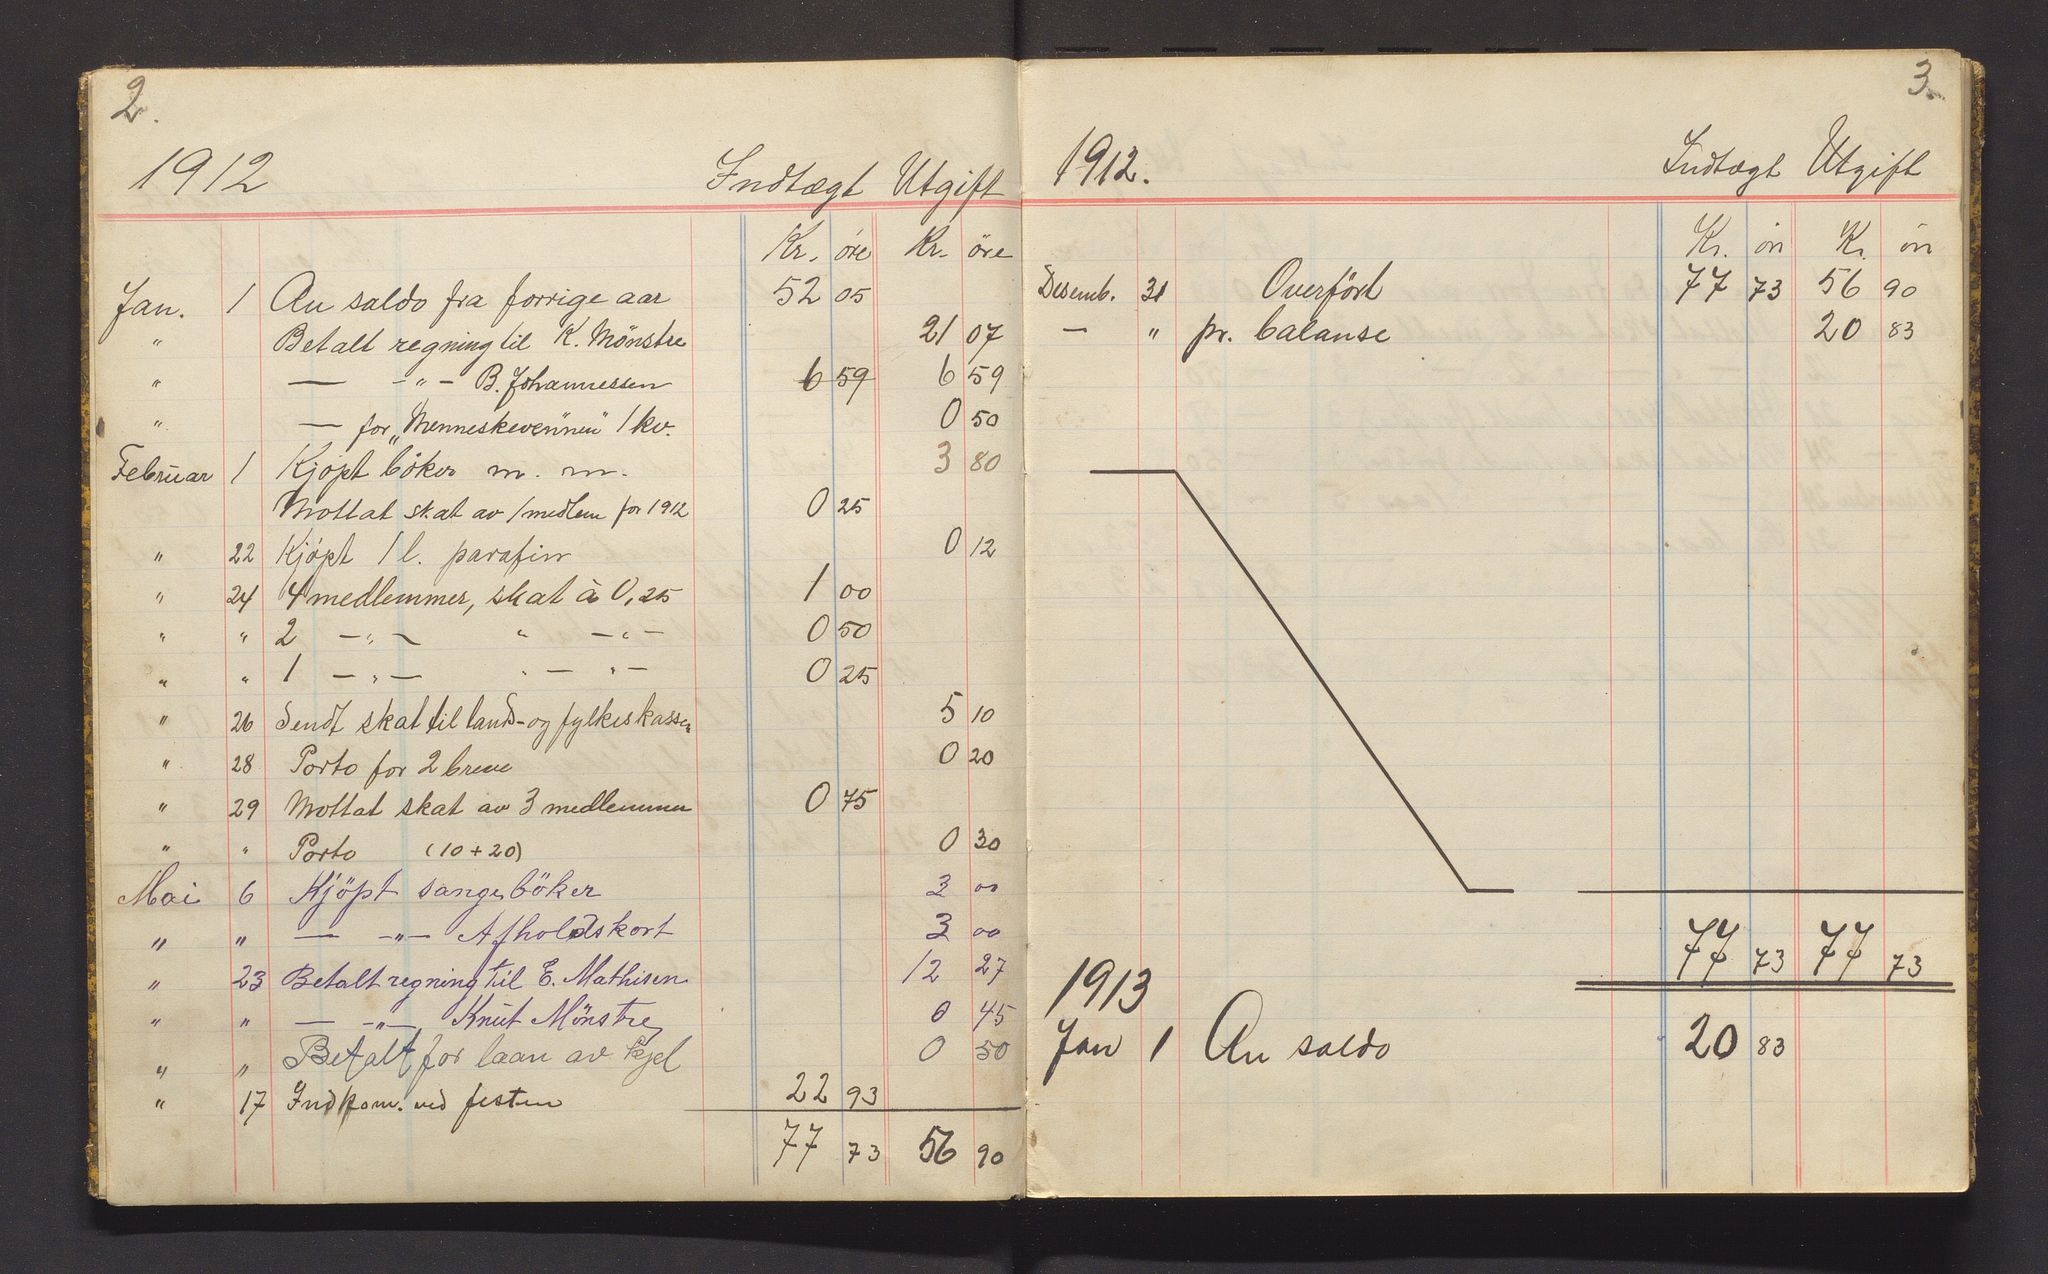 2.
1912 Indtægt Utgift
Kr. öre Kr. öre
Jan. 1 An saldo fra forrige aar 52 05
" Betalt regning til K. Mönstre 21 07
" — -"- B. Johannessen 6 59 6 59
" — for „Menneskevennen" 1 kv. 0 50
Februar 1 Kjöpt böker m. m. 3 80
Mottat skat av 1 medlem for 1912 0 25
" 22 Kjöpt 1 l. parafin 0 12
" 24 4 medlemmer, skat à 0,25 1 00
" " 2 -"- " -"- 0 50
" " 1 -"- " -"- 0 25
" 26 Sendt skat til lands- og fylkeskassen 5 10
" 28 Porto for 2 breve 0 20
" 29 Mottat skat av 3 medlemmer 0 75
" " Porto (10+20) 0 30
Mai 6 Kjöpt sangböker 3 00
" " — -"- Afholdskort 3 00
" 23 Betalt regning til E. Mathisen 12 27
" " — -"- Knut Mönstre 0 45
" " Betalt for laan av kjel 0 50
" 17 Indkom. ved festen 22 93
77 73 56 90
3.
1912. Indtægt Utgift
Kr. öre Kr. öre
Desemb. 31 Overfört 77 73 56 90
— " pr. balanse 20 83
77 73 77 73
1913
Jan 1 An saldo 20 83